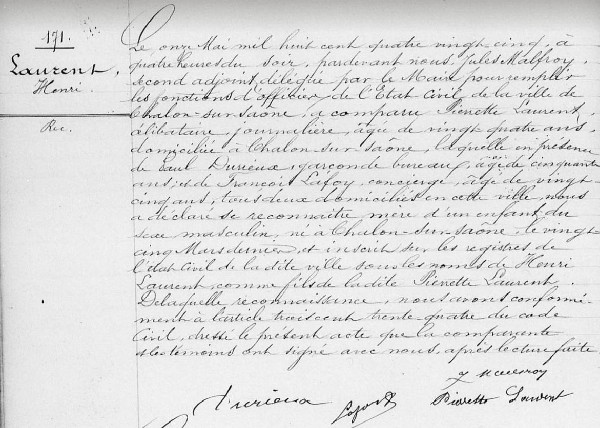 171.
Laurent,
Henri.
Rec.
Le onze Mai mil huit cent quatre vingt-cinq, à
quatre heures du soir, pardevant nous Jules Malfroy,
second adjoint, délégué par le Maire pour remplir
les fonctions d'officier de l'Etat Civil de la ville de
Chalon-sur-Saône, a comparu Pierrette Laurent,
célibataire, journalière, âgée de vingt quatre ans,
domiciliée à Chalon-sur-Saône, laquelle en présence
de Paul Durieux, garçon de bureau, âgé de cinquante
ans, et de François Lafoy, concierge, âgé de vingt-
cinq ans, tous deux domiciliés en cette ville, nous
a déclaré se reconnaître mère d'un enfant du
sexe masculin, né à Chalon-sur-Saône, le vingt-
cinq Mars dernier, et inscrit sur les registres de
l'état Civil de la dite ville sous les noms de Henri
Laurent, comme fils de la dite Pierrette Laurent.
De laquelle reconnaissance, nous avons conformé-
ment à l'article trois cent trente quatre du code
Civil, dressé le présent acte que la comparante
et les témoins ont signé avec nous, après lecture faite
J Malfroy
Durieux
Pierrette Laurent